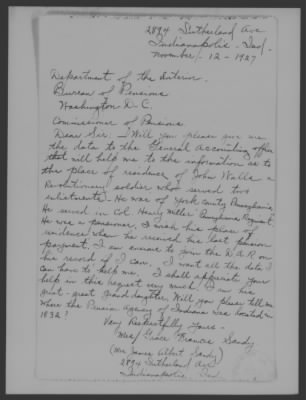 2894 Sutherland Ave
Indianapolis - Ind/
November/- 12 - 1927
Department of the Interior.
Bureau of Pensions
Washington D.C.
Commissioner of Pensions.
Dear Sir. I Will you please give me
the data to the General Accounting office
that will help me to the information as to
the place of residence of John Walls a
Revolutionary soldier who served two
enlistments. He was of York County Pennsylvania,
He served in Col. Henry Miller Pennsylvania Regiment.
He was a pensioner, I wish his place of
residence when he received his last pension
payment. I am anxious to join the D.A.R. on
his record if I can. I want all the data I
can have to help me. I shall appreciate your
help in this request very much. I am his
great-great grand daughter. Will you please tell me
where the Pension Agency of Indiana was located in
1832?
Very Respectfully Yours -
Mrs/ Grace Francis Sandy
(Mrs James Albert Sandy)
2894 Sutherland Ave
Indianapolis Ind.